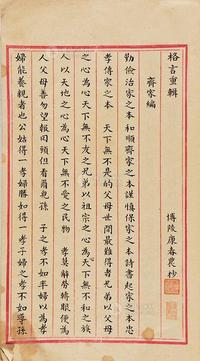 格言重輯
博陵康春農抄
齊家編
勤儉治家之本和順齊家之本謹慎保家之本詩書起家之本忠
孝傳家之本　天下無不是的父母世間最難得者兄弟以父母
之心為心天下無不友之兄弟以祖宗之心為心天下無不和之族
人以天地之心為心天下無不愛之民物　孝莫辭勞轉眼便為
人父母善勿望報回頭但看爾兒孫　子之孝不如率婦以為孝
婦能養親者也公姑得一孝婦勝如得一孝子婦之孝不如導孫